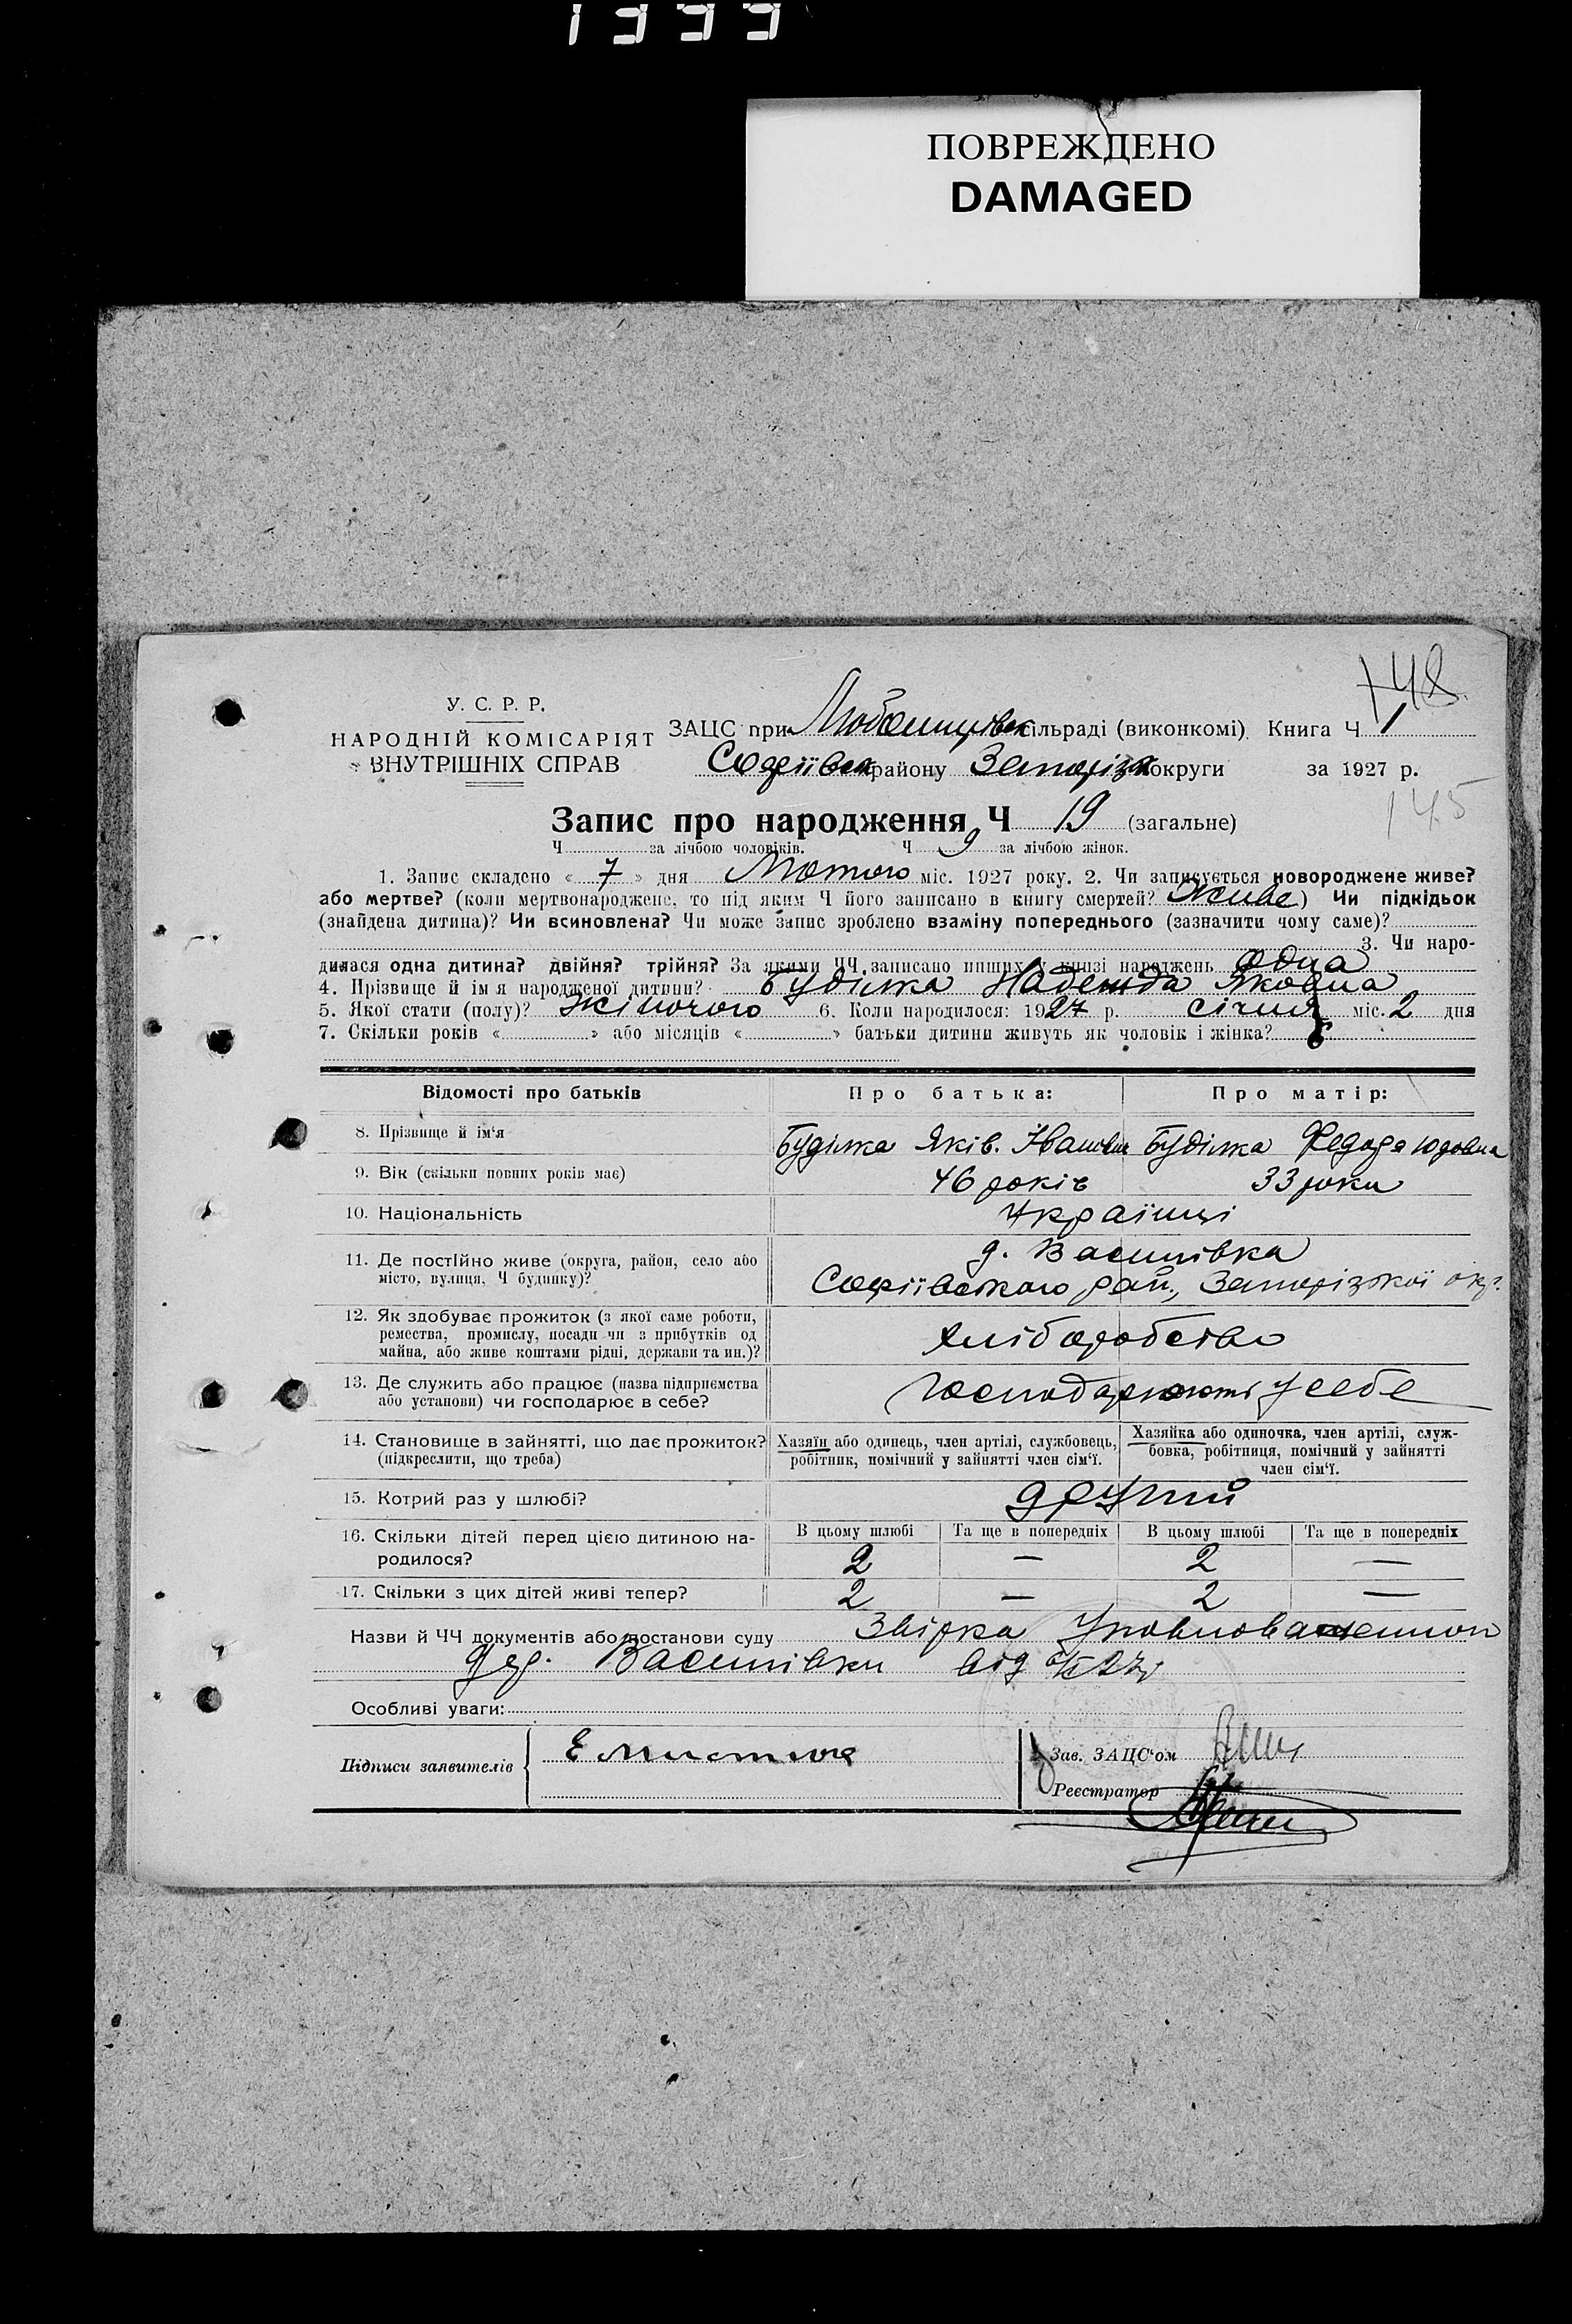 1399
ПОВРЕЖДЕНО
DAMAGED
148.
У. С. Р. Р.
НАРОДНІЙ КОМІСАРІЯТ
ВНУТРІШНІХ СПРАВ
ЗАЦС при сільраді (виконкомі). Книга Ч 1
Софіївськ району Запорізьк округи за 1927 р.
145
Запис про народження Ч 19 (загальне)
Ч за лічбою чоловіків. Ч 9 за лічбою жінок.
1. Запис складено « 7 » дня Лютого міс. 1927 року. 2. Чи записується новороджене живе?
або мертве? (коли мертвонароджене, то під яким Ч його записано в книгу смертей? Живе) Чи підкідьок
(знайдена дитина)? Чи всиновлена? Чи може запис зроблено взаміну попереднього (зазначити чому саме)?
3. Чи наро-
дилася одна дитина? двійня? трійня? За якими ЧЧ записано инших у книзі народжень одна
4. Прізвище й ім я народженої дитини? Буділка Надежда Яковна
5. Якої стати (полу)? жіночого 6. Коли народилося: 1927 р. січня міс. 2 дня
7. Скільки років « » або місяців « » батьки дитини живуть як чоловік і жінка?
Відомості про батьків Про батька: Про матір:
8. Прізвище й ім'я Буділка Яків. Іванович Буділка Федора Юдовна
9. Вік (скільки повних років має) 46 років 33 роки
10. Національність Українці
11. Де постійно живе (округа, район, село або
місто, вулиця, Ч будинку)?
д. Василівка
Софіївського рай., Запорізької окр.
12. Як здобуває прожиток (з якої саме роботи,
ремества, промислу, посади чи з прибутків од
майна, або живе коштами рідні, держави та ин.)?
хліборобство
13. Де служить або працює (назва підприємства
або установи) чи господарює в себе?
господарюють у себе
14. Становище в зайнятті, що дає прожиток?
(підкреслити, що треба)
Хазяїн або одинець, член артілі, службовець,
робітник, помічний у зайнятті член сім'ї.
Хазяйка або одиночка, член артілі, служ-
бовка, робітниця, помічний у зайнятті
член сім'ї.
15. Котрий раз у шлюбі? другий
16. Скільки дітей перед цією дитиною на-
родилося?
В цьому шлюбі Та ще в попередніх В цьому шлюбі Та ще в попередніх
2 — 2 —
17. Скільки з цих дітей живі тепер? 2 — 2 —
Назви й ЧЧ документів або постанови суду Звірка Уповноваженного
дер. Василівки від
Особливі уваги:
Підписи заявителів
Зав. ЗАЦС'ом
Реєстратор